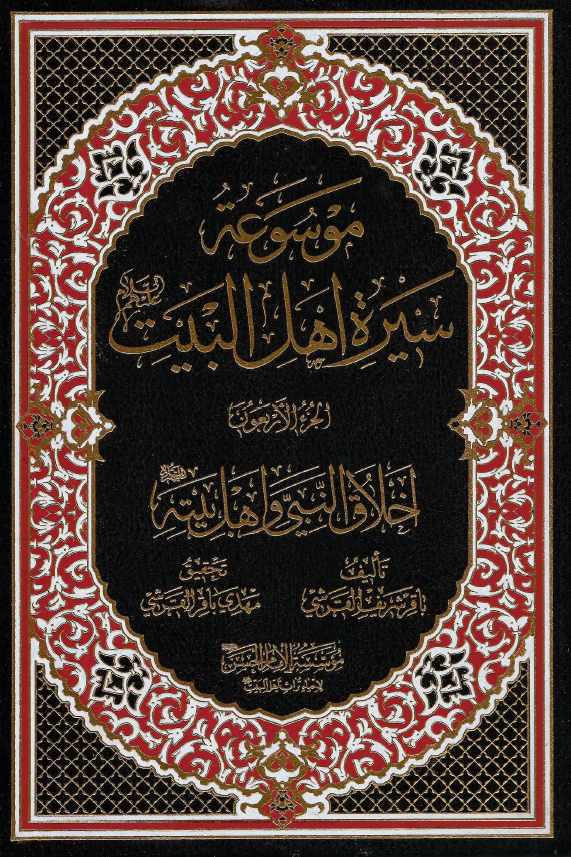 موسوعة
سيرة أهل البيت عليهم السلام
الجزء الأربعون
أخلاق النبي وأهل بيته
تأليف
باقر شريف القرشي
تحقيق
مهدي باقر القرشي
مؤسسة الإمام الحسن
لإحياء تراث أهل البيت